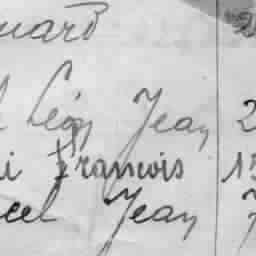 uard 2
l Léon Jean 2
i François 13
cel Jean 7